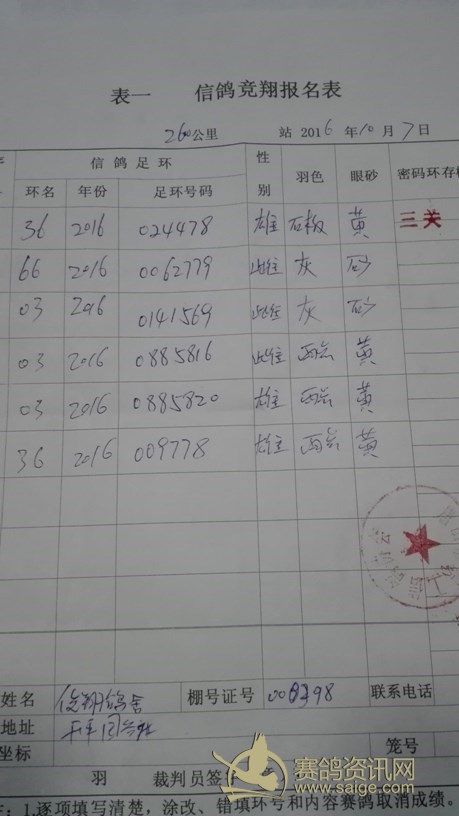 表一 信鸽竞翔报名表
260公里 站 2016 年 10 月 7 日
信鸽足环 性别 羽色 眼砂 密码环存根
环名 年份 足环号码
36 2016 024478 雄 石板 黄 三关
66 2016 0062779 雌 灰 砂
03 2016 0141569 雌 灰 砂
03 2016 0885816 雌 雨点 黄
03 2016 0885820 雄 雨点 黄
36 2016 009778 雄 雨点 黄
姓名 俊翔鸽舍 棚号证号 联系电话
地址
坐标 笼号
羽 裁判员签
赛鸽资讯网
www.saige.com
注:1.逐项填写清楚,涂改、错填环号和内容赛鸽取消成绩。